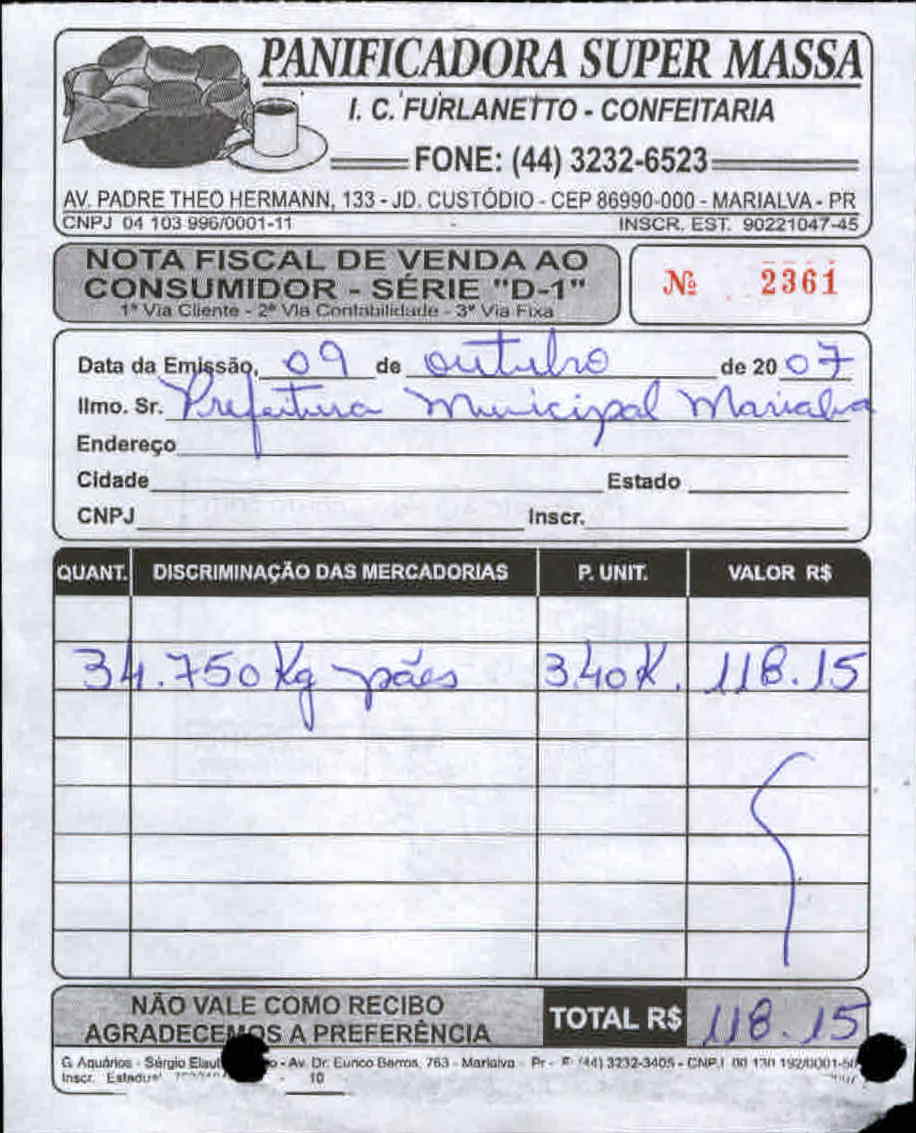 PANIFICADORA SUPER MASSA
I. C. FURLANETTO - CONFEITARIA
FONE: (44) 3232-6523
AV. PADRE THEO HERMANN, 133 - JD. CUSTÓDIO - CEP 86990-000 - MARIALVA - PR
CNPJ 04 103 996/0001-11 INSCR. EST. 90221047-45
NOTA FISCAL DE VENDA AO
CONSUMIDOR - SÉRIE "D-1"
1ª Via Cliente - 2ª Via Contabilidade - 3ª Via Fixa
Nº 2361
Data da Emissão, 09 de outubro de 2007
Ilmo. Sr. Prefeitura Municipal Marialva
Endereço
Cidade Estado
CNPJ Inscr.
QUANT. DISCRIMINAÇÃO DAS MERCADORIAS P. UNIT. VALOR R$
34.750 Kg pães 3,40 K. 118.15
NÃO VALE COMO RECIBO
AGRADECEMOS A PREFERÊNCIA
TOTAL R$ 118.15
G. Aquários - Sérgio - Av. Dr. Eurico Barros, 763 - Marialva - Pr - F: (44) 3232-3405 - CNPJ
Inscr. Estadual 10